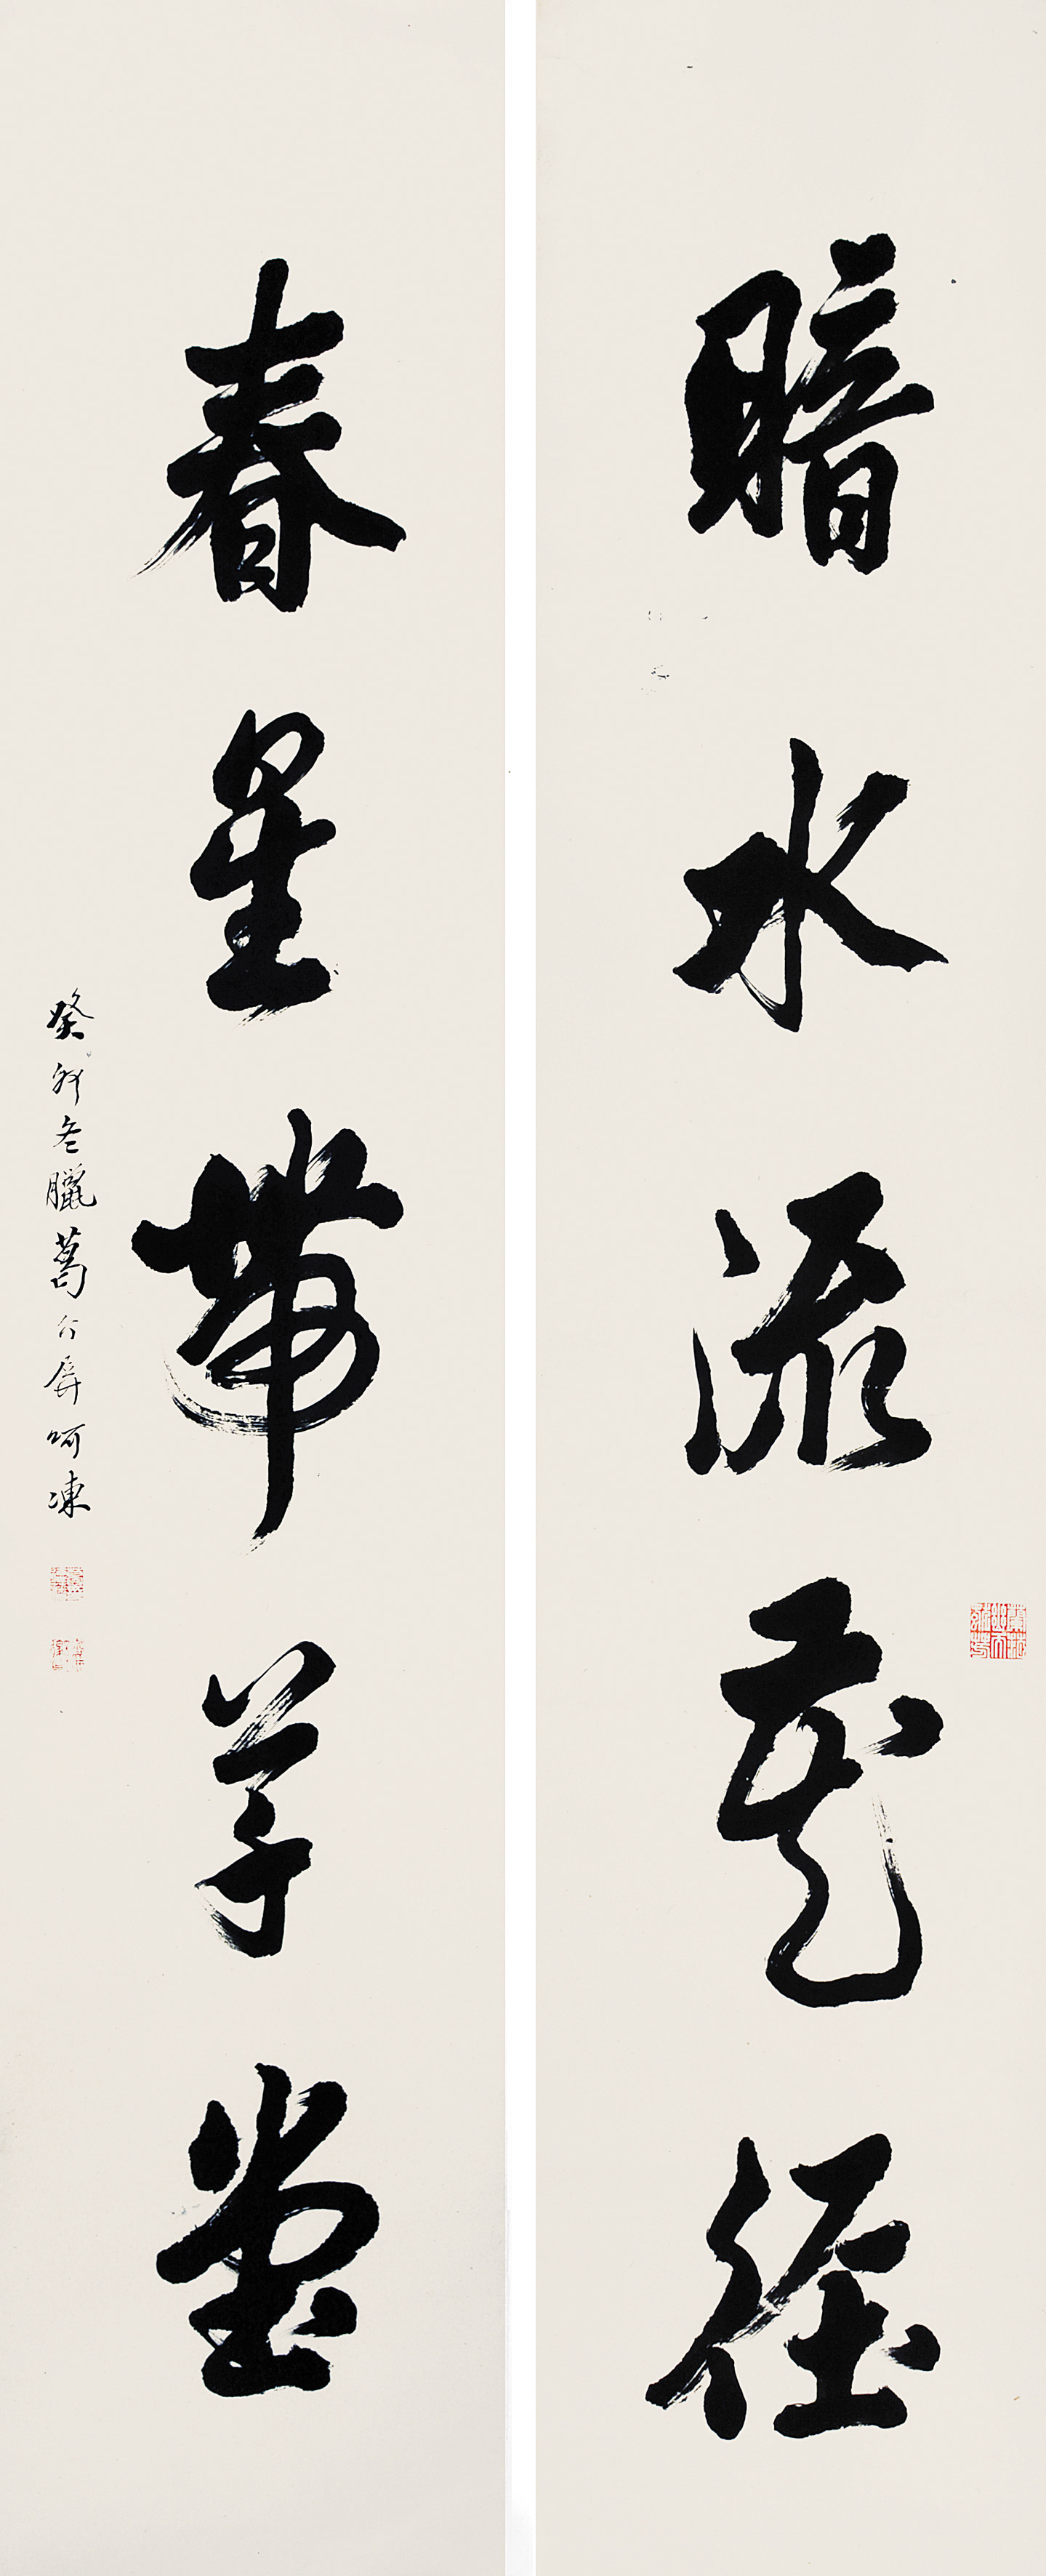 暗水流花径
春星带草堂
癸卯冬臘葛介屏呵凍